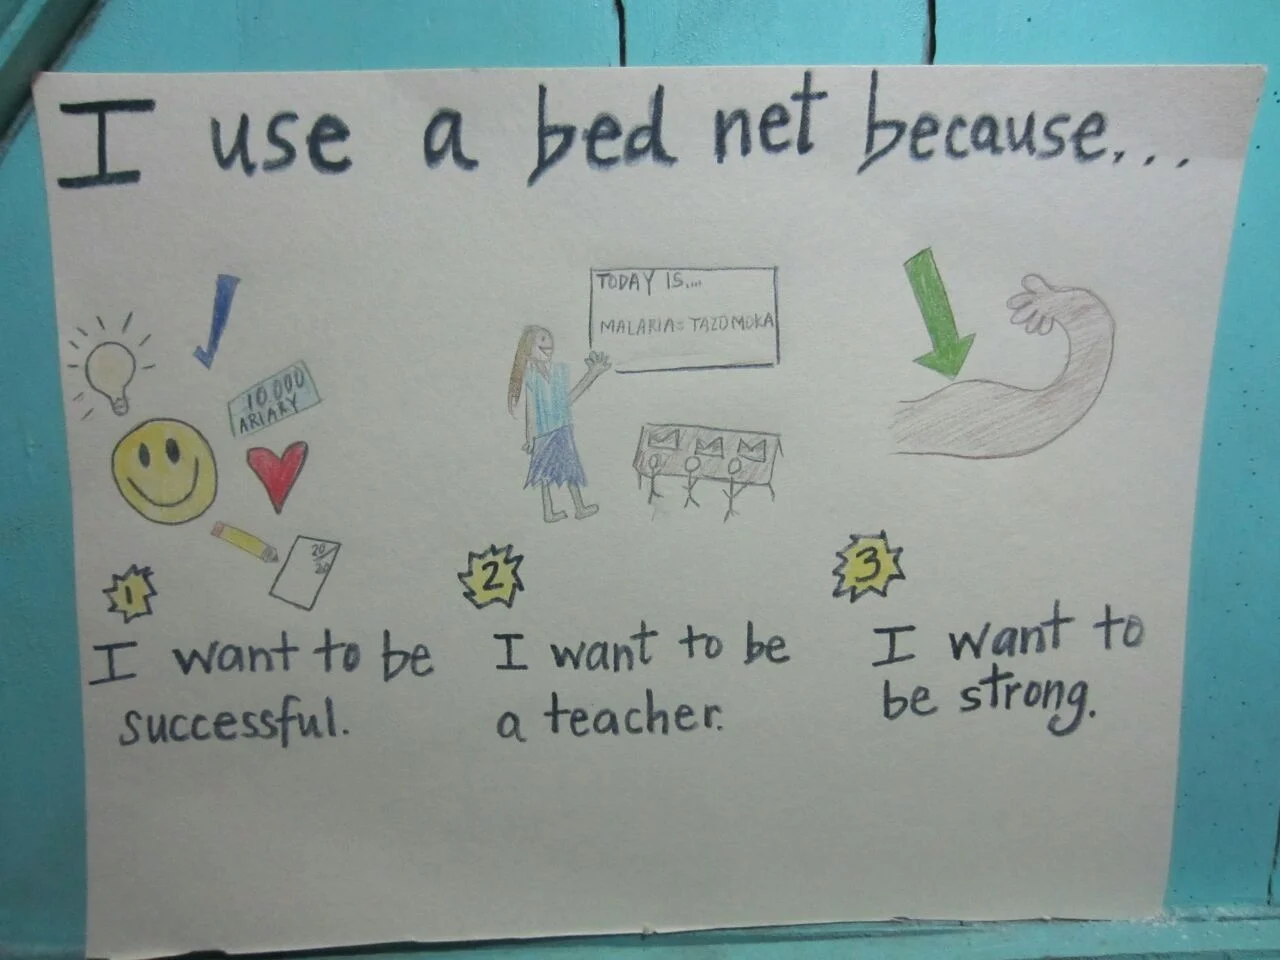 I use a bed net because...
10.000
ARIARY
20/20
TODAY IS....
MALARIA = TAZOMOKA
1
I want to be
successful.
2
I want to be
a teacher.
3
I want to
be strong.